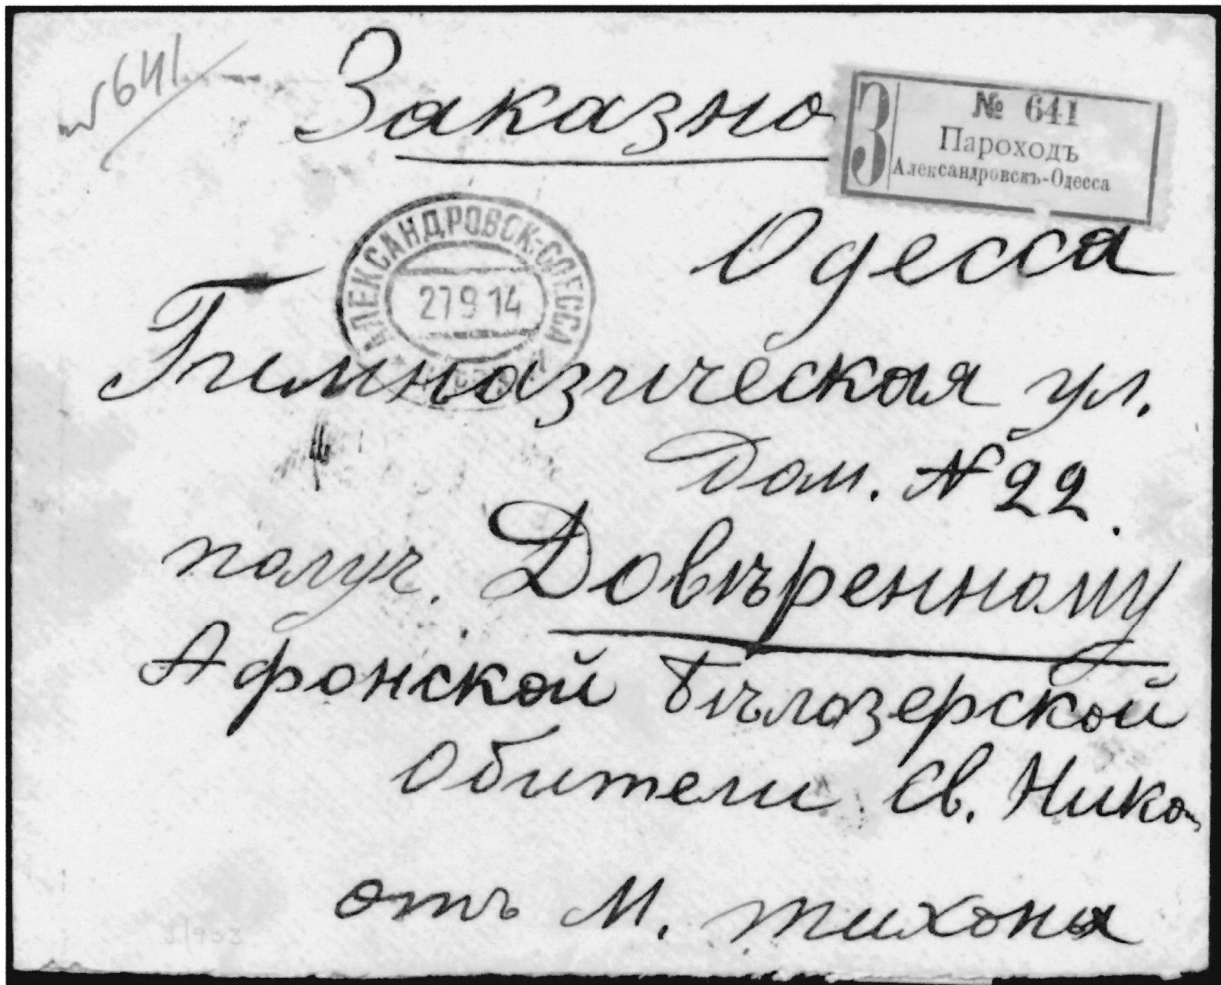 № 641
Заказно
З
№ 641
Пароходъ
Александровскъ-Одесса
АЛЕКСАНДРОВСК-ОДЕССА
27 9 14
Одесса
Гимназическая ул.
Дом. № 22.
получ. Довѣренному
Афонской Бѣлозерской
Обители Св. Нико
отъ М. Тихона